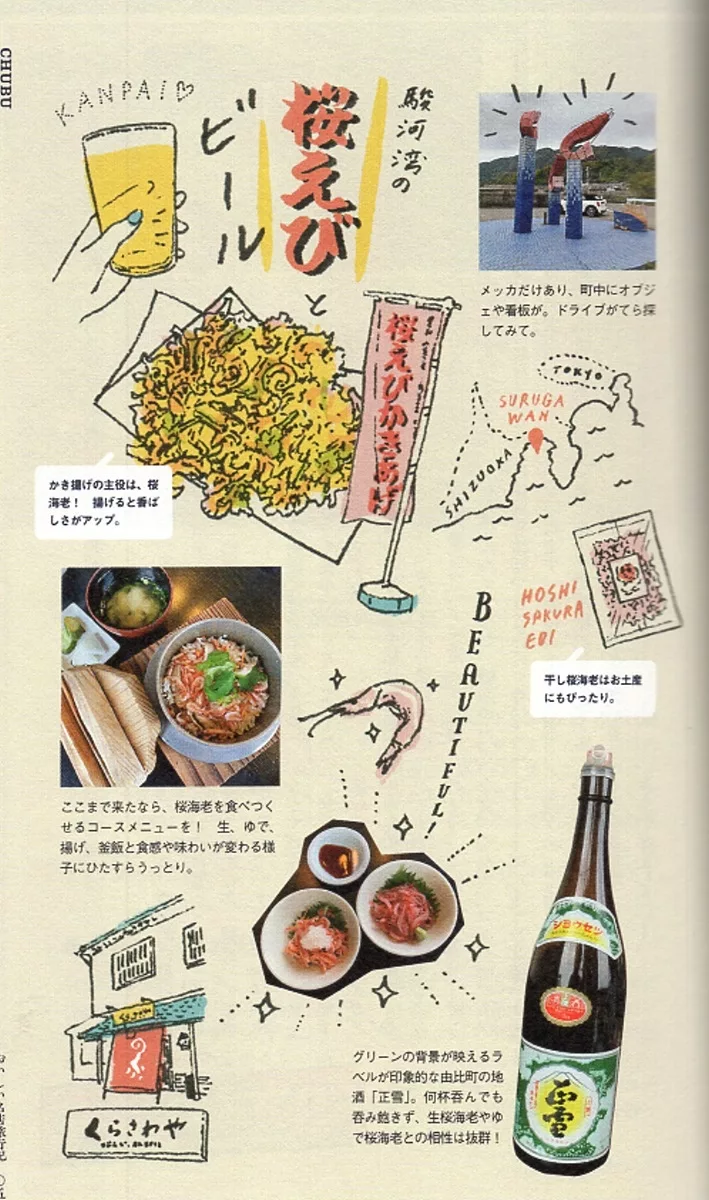 CHUBU
KANPAI♡
駿河湾の
桜えび
ビール
と
メッカだけあり、町中にオブジ
ェや看板が。ドライブがてら探
してみて。
桜えびかきあげ
TOKYO
SURUGA
WAN
SHIZUOKA
かき揚げの主役は、桜
海老！　揚げると香ば
しさがアップ。
HOSHI
SAKURA
EBI
干し桜海老はお土産
にもぴったり。
BEAUTIFUL!
ここまで来たなら、桜海老を食べつく
せるコースメニューを！　生、ゆで、
揚げ、釜飯と食感や味わいが変わる様
子にひたすらうっとり。
ショウセツ
グリーンの背景が映えるラ
ベルが印象的な由比町の地
酒「正雪」。何杯呑んでも
呑み飽きず、生桜海老やゆ
で桜海老との相性は抜群！
正雪
くらさわや